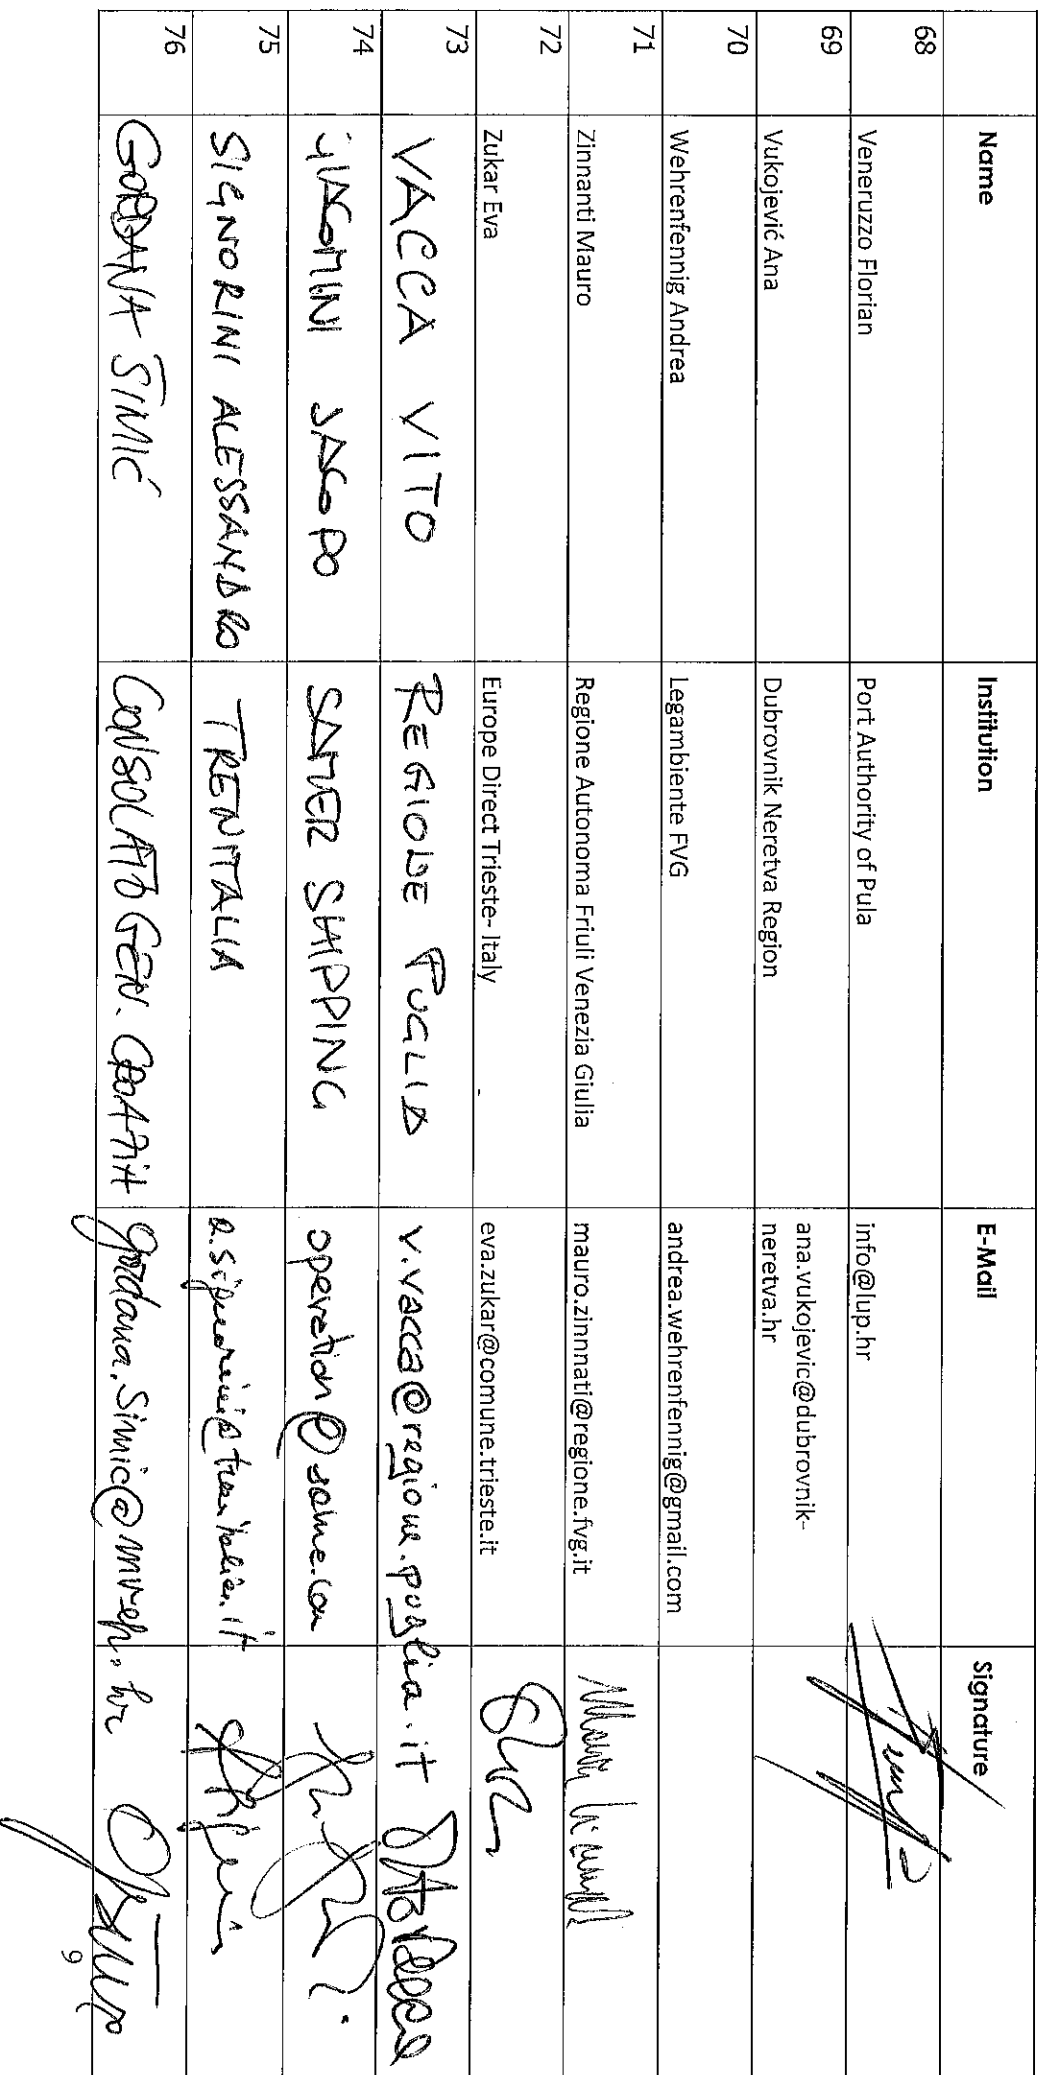 Name Institution E-Mail Signature
68 Veneruzzo Florian Port Authority of Pula info@lup.hr
69 Vukojević Ana Dubrovnik Neretva Region ana.vukojevic@dubrovnik-
neretva.hr
70 Wehrenfennig Andrea Legambiente FVG andrea.wehrenfennig@gmail.com
71 Zinnanti Mauro Regione Autonoma Friuli Venezia Giulia mauro.zinnnati@regione.fvg.it
72 Zukar Eva Europe Direct Trieste- Italy eva.zukar@comune.trieste.it
73 VACCA VITO REGIONE PUGLIA v.vacca@regione.puglia.it
74 GIACOMINI JACOPO SAMER SHIPPING operation@same.com
75 SIGNORINI ALESSANDRO TRENITALIA a.signorini@trenitalia.it
76 GORDANA SIMIĆ CONSOLATO GEN. CROAZIA gordana.simic@mvep.hr
9